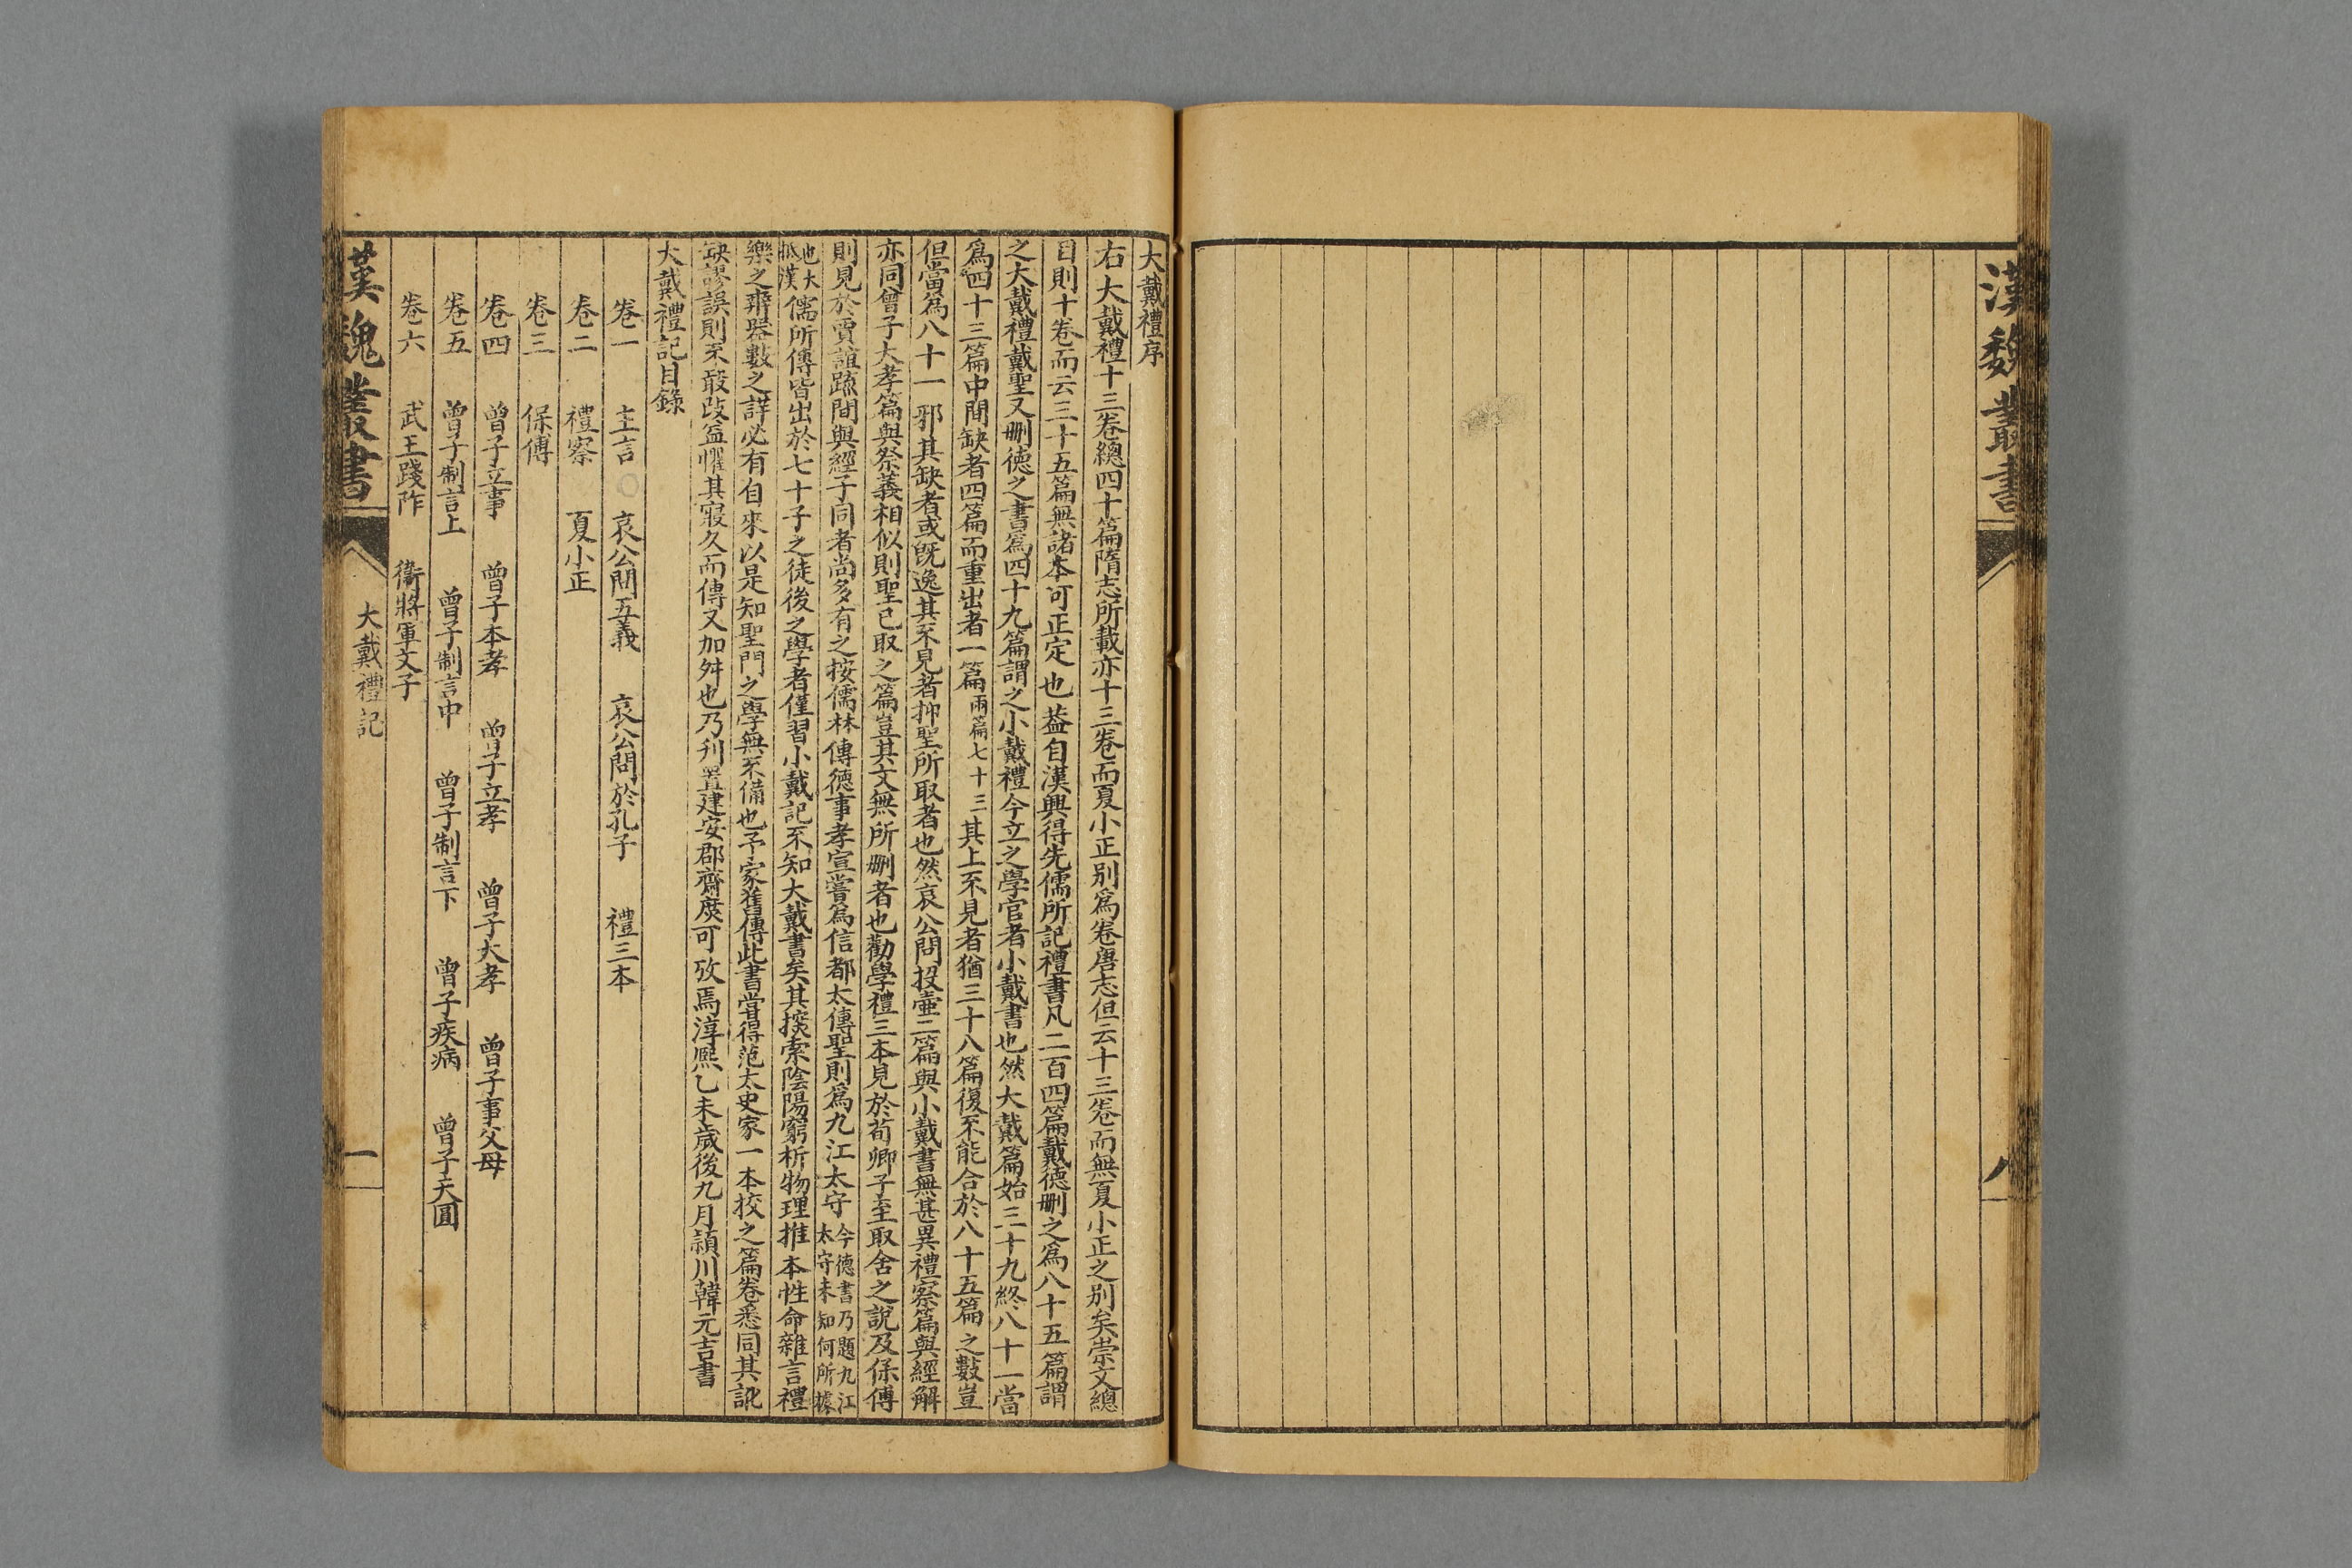 漢魏叢書
八
大戴禮序
右大戴禮十三卷總四十篇隋志所載亦十三卷而夏小正别爲卷唐志但云十三卷而無夏小正之别矣崇文總
目則十卷而云三十五篇無諸本可正定也葢自漢興得先儒所記禮書凡二百四篇戴德刪之爲八十五篇謂
之大戴禮戴聖又刪德之書爲四十九篇謂之小戴禮今立之學官者小戴書也然大戴篇始三十九終八十一當
爲四十三篇中間缺者四篇而重出者一篇兩篇七十三其上不見者猶三十八篇復不能合於八十五篇之數豈
但當爲八十一邪其缺者或旣逸其不見者抑聖所取者也然哀公問投壷二篇與小戴書無甚異禮察篇與經解
亦同曾子大孝篇與祭義相似則聖已取之篇豈其文無所刪者也勸學禮三本見於荀卿子至取舍之說及保傅
則見於賈誼疏間與經子同者尚多有之按儒林傳德事孝宣嘗爲信都太傅聖則爲九江太守今德書乃題九江太守未知何所據
也大抵漢儒所傳皆出於七十子之徒後之學者僅習小戴記不知大戴書矣其探索陰陽窮析物理推本性命雜言禮
樂之辨器數之詳必有自來以是知聖門之學無不備也予家舊傳此書嘗得范太史家一本校之篇卷悉同其訛
缺謬誤則不敢改益懼其寖久而傳又加舛也乃刋置建安郡齋庶可攷焉淳熙乙未歲後九月頴川韓元吉書
大戴禮記目錄
卷一 主言 哀公問五義 哀公問於孔子 禮三本
卷二 禮察 夏小正
卷三 保傅
卷四 曾子立事 曾子本孝 曾子立孝 曾子大孝 曾子事父母
卷五 曾子制言上 曾子制言中 曾子制言下 曾子疾病 曾子天圓
卷六 武王踐阼 衛將軍文子
漢魏叢書 大戴禮記 一